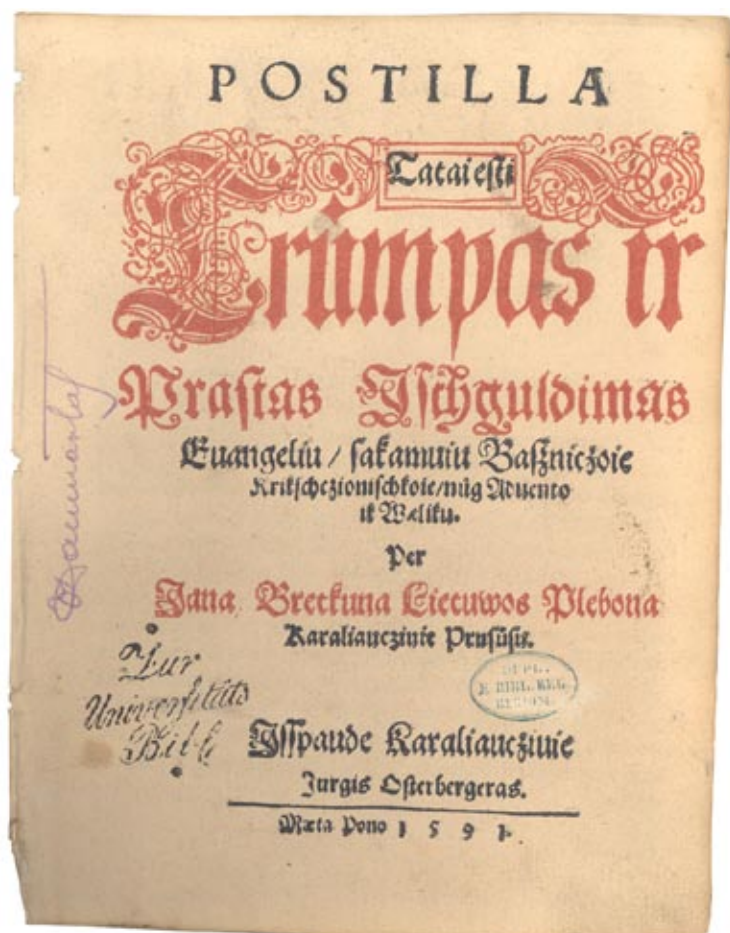 POSTILLA
Tatai esti
Trumpas ir
Prastas Ischguldimas
Euangeliu / sakamuiu Baßniczoie
Krikschczionischkoie / nůg Aduento
ik Wæliku.
Per
Jana Bretkuna Lietuwos Plebona
Karaliaucziuie Prusůsu.
Zur
Universitäts
Bibl
DUPL.
E BIBL. REG.
REGIOM.
Isspaude Karaliaucziuie
Jurgis Osterbergeras.
Mæta Pono 1591.